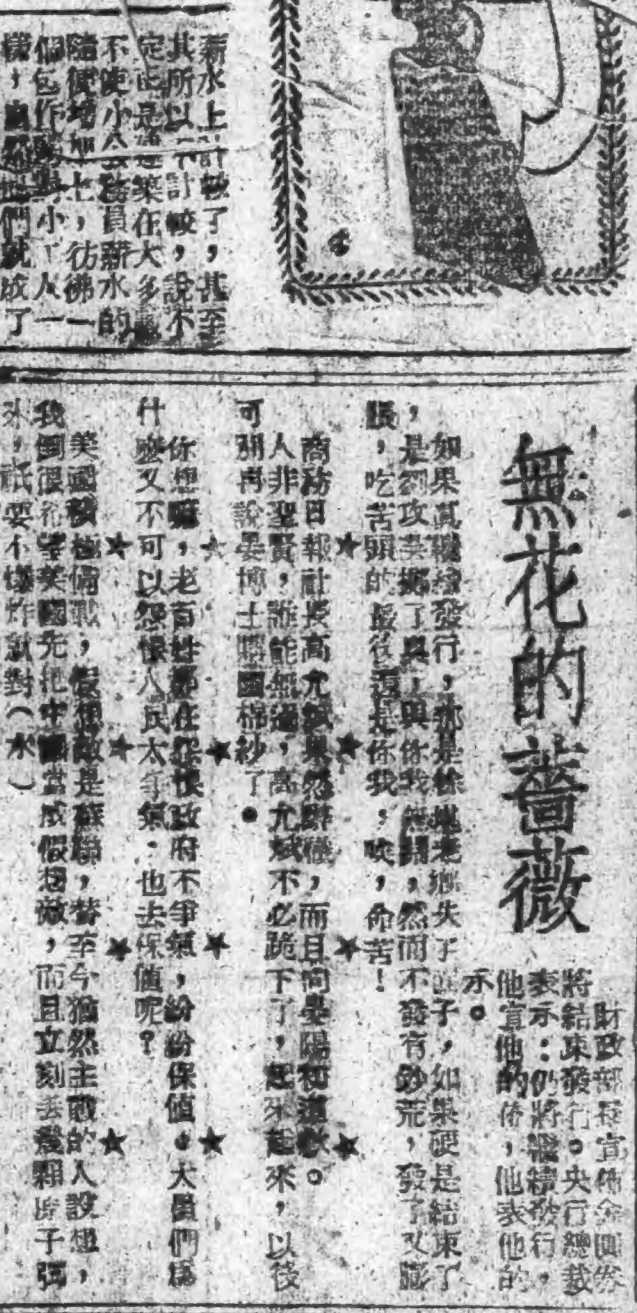 薪水上計較了，甚至
其所以不計較，說不
定正是建築在大多數
不使小公務員薪水的
隨便增加上，彷彿一
個包作 小工人一
樣， 他們就成了
無花的薔薇
財政部長宣佈金圓券
將結束發行。央行總裁
表示：仍將繼續發行，
他宣他的佈，他表他的
示。
如果真繼續發行，那是徐堪老 失了面子，如果硬是結束了
，是劉攻芸 了臭，與你我無關，然而不發有鈔荒，發了又膨
脹，吃苦頭的最後還是你我，唉，命苦！
★ ★ ★ ★
商務日報社長高允斌果然辭職，而且向晏陽初道歉。
人非聖賢，誰能無過，高允斌不必跪下了，起來起來，以後
可別再說晏博士購囤棉紗了。
★ ★ ★ ★
你想嘛，老百姓都在怨恨政府不爭氣，紛紛保值。大員們為
什麼又不可以怨恨人民太爭氣；也去保值呢？
★ ★ ★ ★
美國積極備戰，假想敵是蘇聯，替至今猶然主戰的人設想，
我倒很希望美國先把中國當成假想敵，而且立刻丟幾顆原子彈
來，祇要不爆炸就對（水）